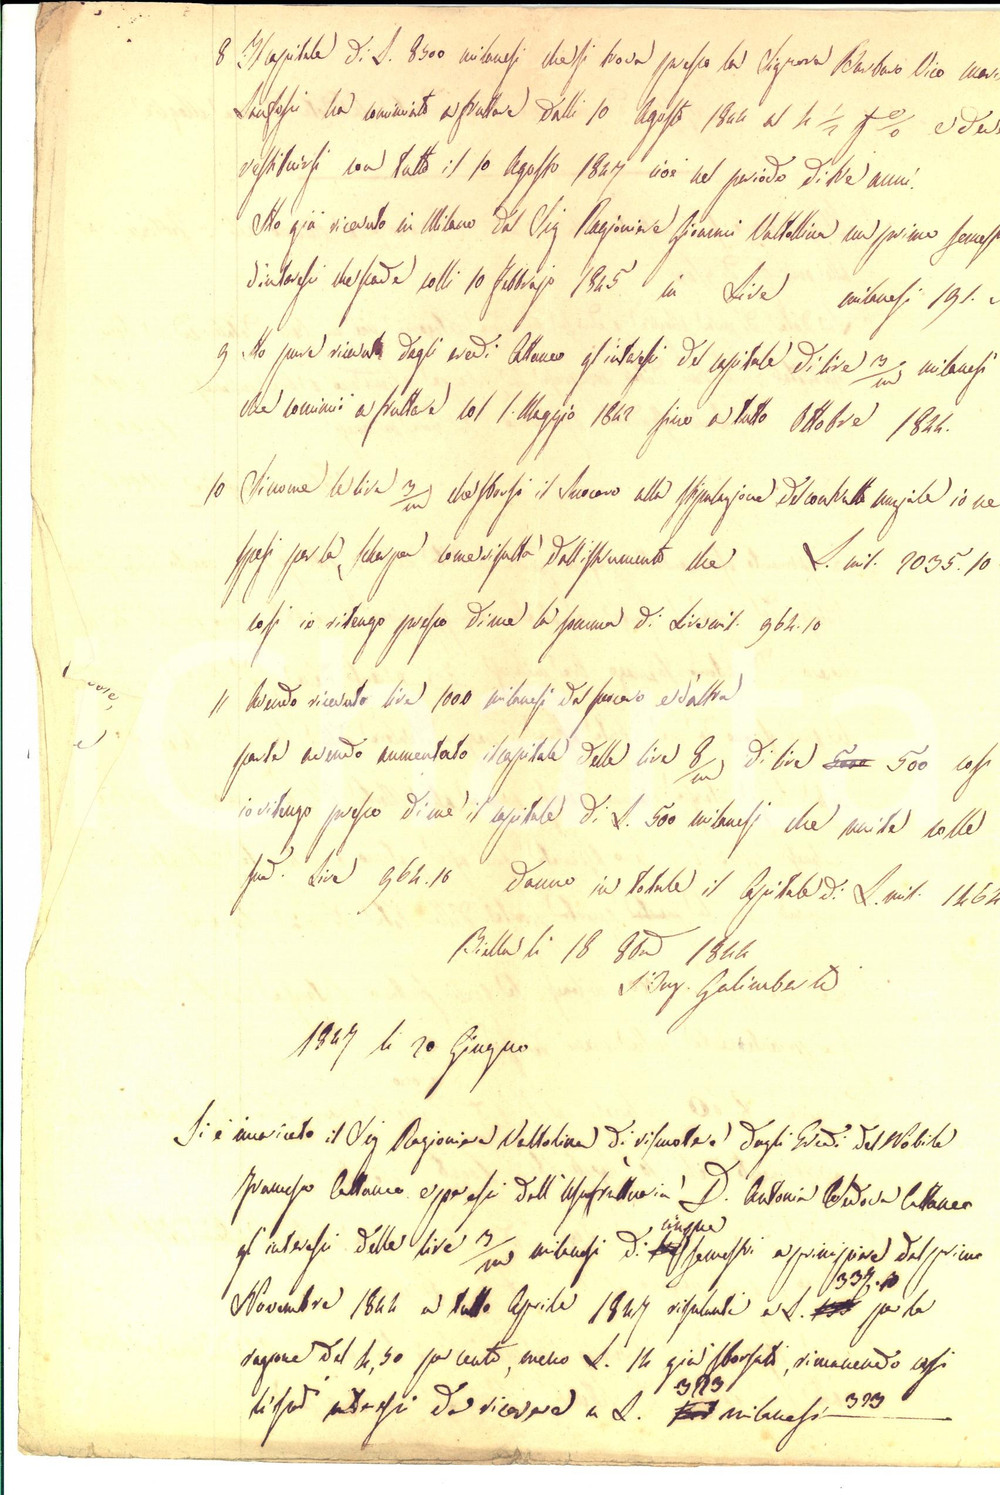 8 Il capitale di L. 8500 milanesi che si trova presso la Signora Barbara Vico mari
Lanfossi ha cominciato a fruttare dalli 10 Agosto 1844 al 4 1/2 p % e deve
restituirsi con tutto il 10 Agosto 1847 cioè nel periodo di tre anni.
Ho già ricevuto in Milano dal Sig Ragioniere Giovanni Valtollina un primo semest
d'interessi che scade colli 10 Febbrajo 1845 in Lire milanesi 191.
9 Ho pure ricevuto dagli eredi Cattaneo gl'interessi del capitale di lire 3/m milanesi
che cominciò a fruttare col 1. Maggio 1842 fino a tutto Ottobre 1844.
10 Siccome le lire 3/m che sborsò il Suocero alla stipulazione del contratto nuziale io ne
spesi per la scherpa come risulta dall'istrumento che L. mil. 2035.10
così io ritengo presso di me la somma di Lire mil. 964.10
11 Avendo ricevuto lire 1000 milanesi dal suocero e d'altra
parte avendo aumentato il capitale delle lire 8/m di lire 500 così
io ritengo presso di me il capitale di L. 500 milanesi che unite colle
sud. Lire 964.10 danno in totale il Capitale di L. mil. 1464
Biella li 18 8bre 1844
L'Ing. Galimberti
1847 li 20 Giugno
Si è incaricato il Sig Ragioniere Valtolina di riscuotere dagli Eredi del Nobile
Francesco Cattaneo e per essi dall'Usufruttuaria D. Antonia Vedova Cattaneo
gl'interessi delle lire 3/m milanesi di cinque semestri a principiare dal primo
Novembre 1844 a tutto Aprile 1847 risultanti a L. 337.10 per la
ragione del 4,50 per cento, meno L. 14 già sborsati, rimanendo così
li sud interessi da ricevere a L. 323 milanesi 323